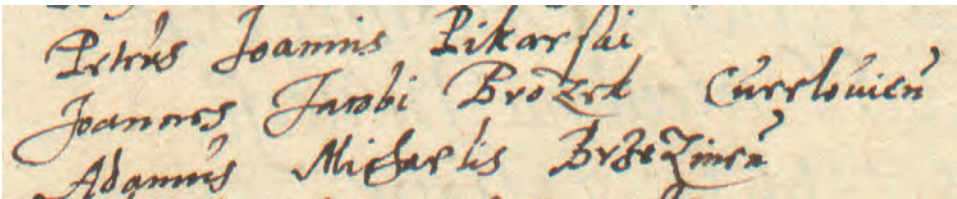 Petrus Joannis Pikarsai
Joannes Jacobi Brożek Curelouien
Adamus Michaelis Brzezinen